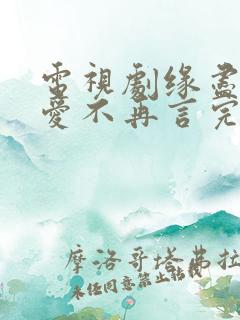 電視劇缘盡
愛不再言完
摩洛哥塔弗拉
未经同意禁止转载